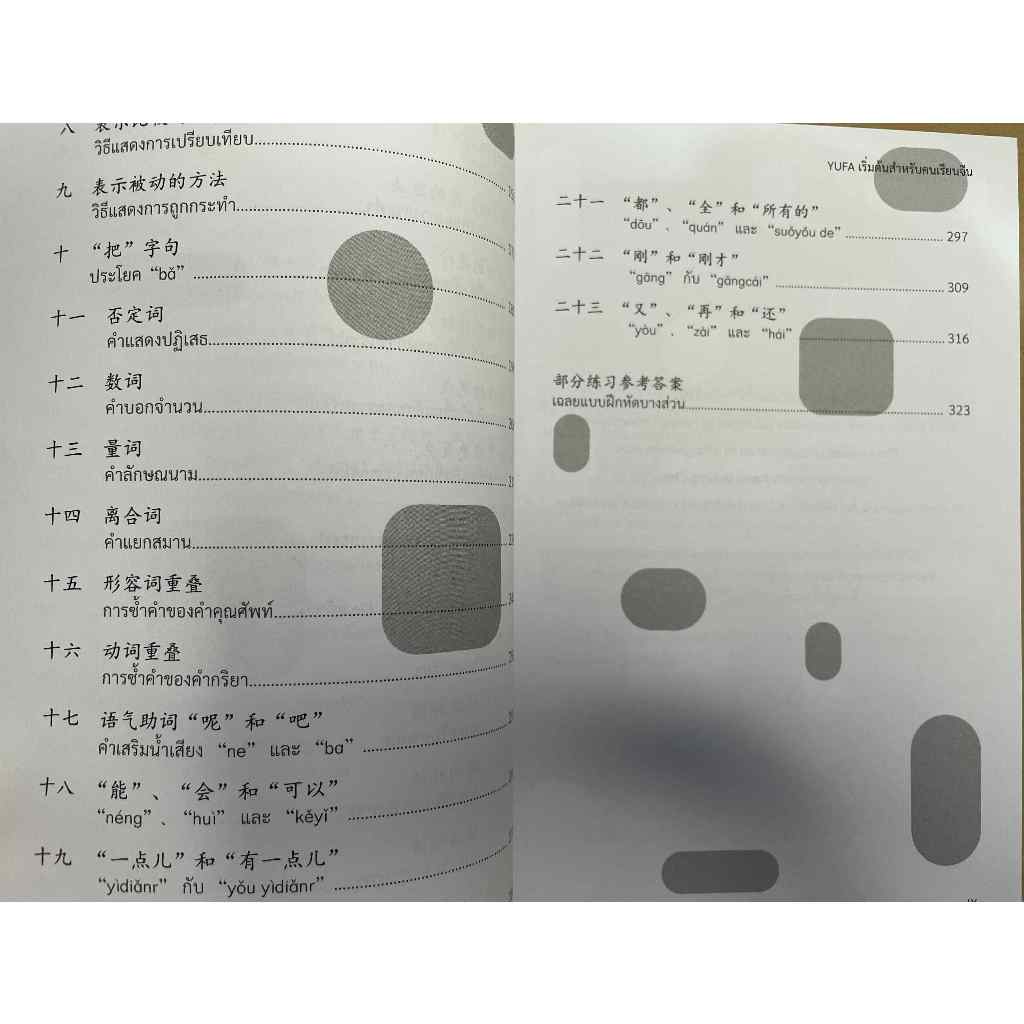 八
วิธีแสดงการเปรียบเทียบ
九 表示被动的方法
วิธีแสดงการถูกกระทำ
十 “把”字句
ประโยค “bǎ”
十一 否定词
คำแสดงปฏิเสธ
十二 数词
คำบอกจำนวน
十三 量词
คำลักษณนาม
十四 离合词
คำแยกสมาน
十五 形容词重叠
การซ้ำคำของคำคุณศัพท์
十六 动词重叠
การซ้ำคำของคำกริยา
十七 语气助词“呢”和“吧”
คำเสริมน้ำเสียง “ne” และ “ba”
十八 “能”、“会”和“可以”
“néng”、“huì” และ “kěyǐ”
十九 “一点儿”和“有一点儿”
“yìdiǎnr” กับ “yǒu yìdiǎnr”
YUFA เริ่มต้นสำหรับคนเรียนจีน
二十一 “都”、“全”和“所有的”
“dōu”、“quán” และ “suǒyǒu de” 297
二十二 “刚”和“刚才”
“gāng” กับ “gāngcái” 309
二十三 “又”、“再”和“还”
“yòu”、“zài” และ “hái” 316
部分练习参考答案
เฉลยแบบฝึกหัดบางส่วน 323